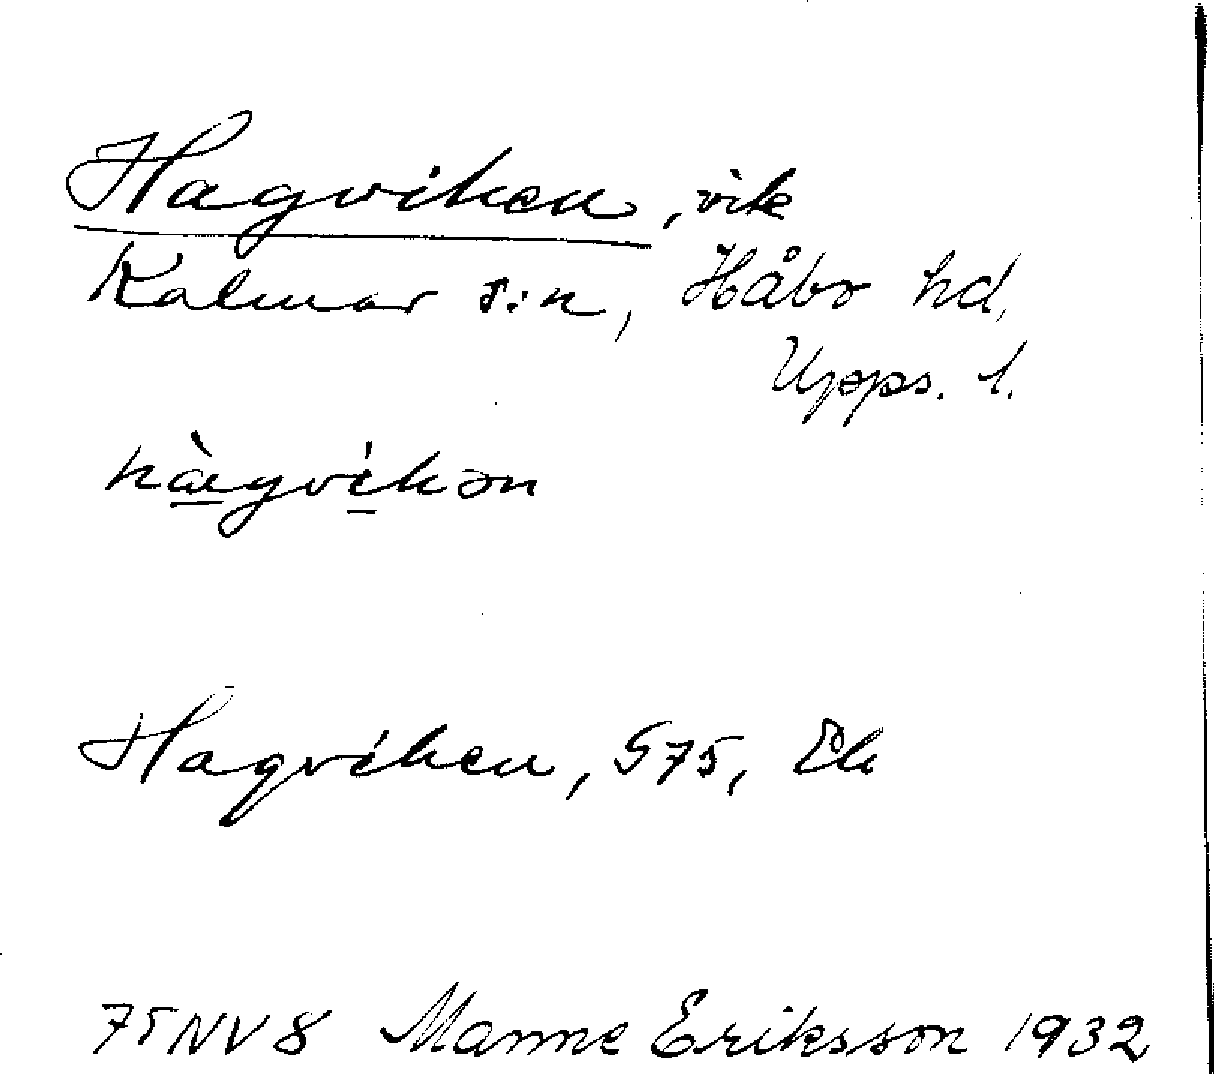 Hagviken, vik
Kalmar s:n, Håbo hd,
Upps. l.
hàgvíkən
Hagviken, G75, Ek
75NV8 Manne Eriksson 1932